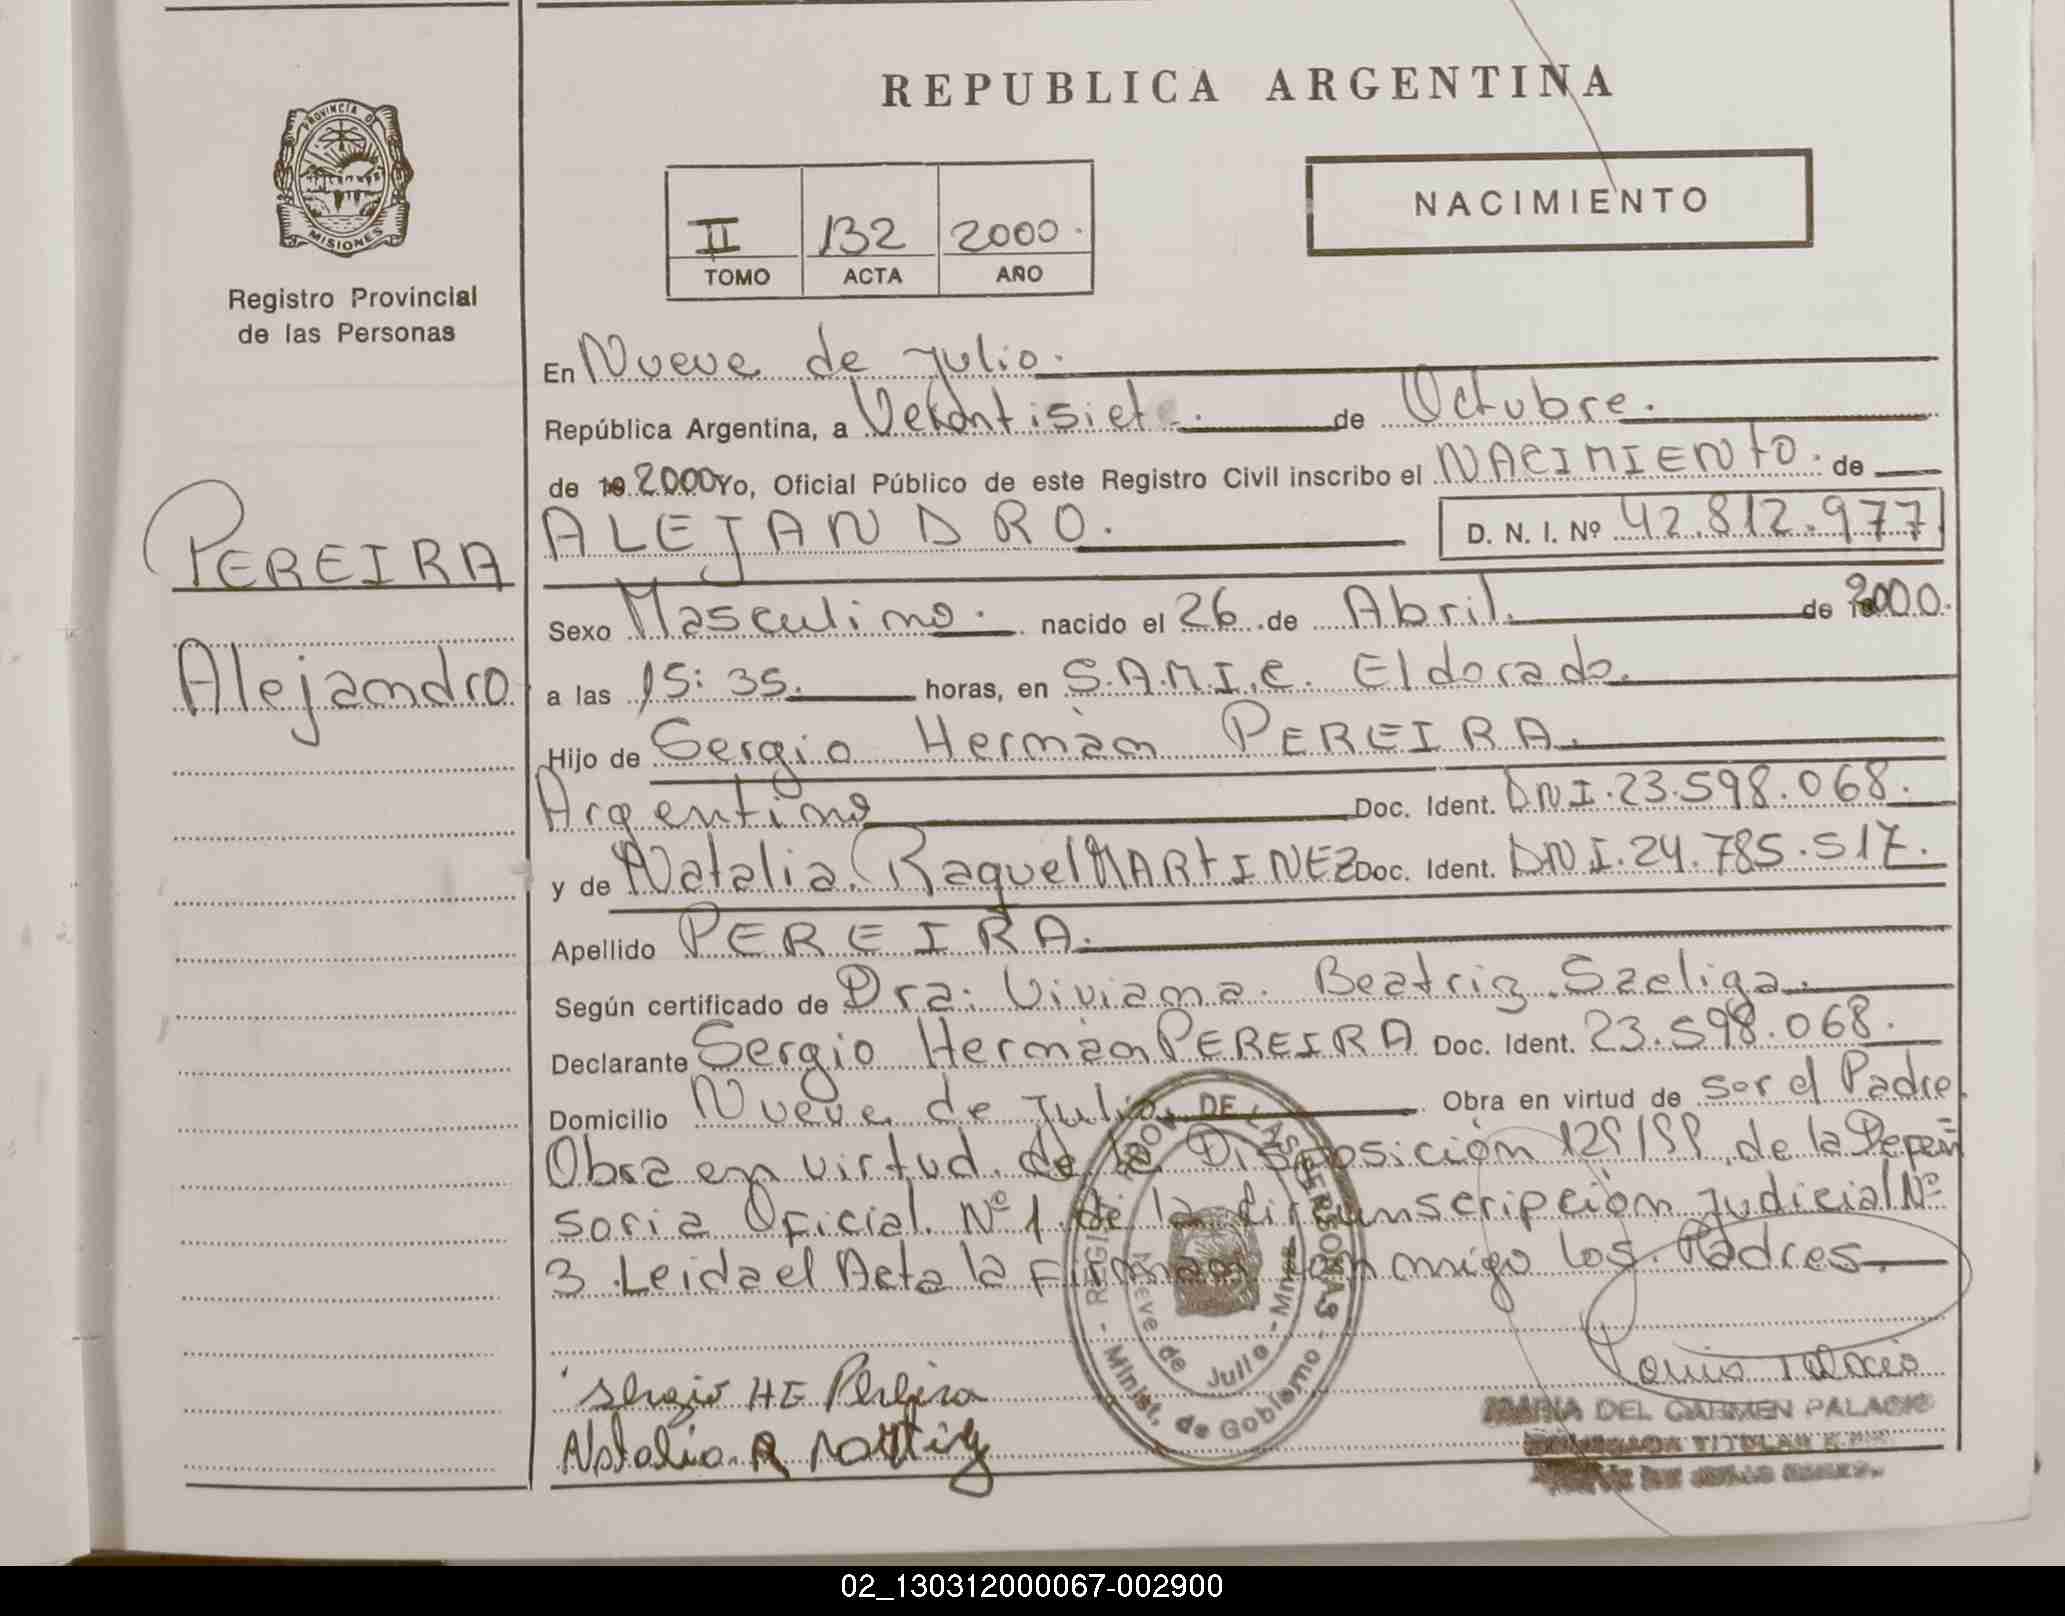 REPUBLICA ARGENTINA
PROVINCIA D
MISIONES
Registro Provincial
de las Personas
II 132 2000.
TOMO ACTA AÑO
NACIMIENTO
En Nueve de Julio.
República Argentina, a Veintisiete. de Octubre.
de 19 2000 Yo, Oficial Público de este Registro Civil inscribo el NACIMIENTO. de
ALEJANDRO. D. N. I. Nº 42.812.977
PEREIRA
Alejandro
Sexo Masculino. nacido el 26 de Abril. de 2000.
a las 15:35. horas, en S.A.M.I.C. Eldorado.
Hijo de Sergio Hernàn PEREIRA.
Argentino Doc. Ident. DNI.23.598.068.
y de Natalia Raquel MARTINEZ Doc. Ident. DNI.24.785.517.
Apellido PEREIRA.
Según certificado de Dra: Viviana Beatriz Szeliga.
Declarante Sergio Hernàn PEREIRA Doc. Ident. 23.598.068.
Domicilio Nueve de Julio. Obra en virtud de ser el Padre.
Obra en virtud de la Disposición 129/99 de la Defen
soria Oficial Nº 1 de la Circunscripciòn Judicial Nº
3. Leida el Acta la Firman conmigo los Padres.
REGIST. PROV. DE LAS PERSONAS
Nueve de Julio - Mnes.
- Minist. de Gobierno -
Sergio HE Pereira
Natalia R Martinez
MARIA DEL CARMEN PALACIO
TITULAR
02_130312000067-002900